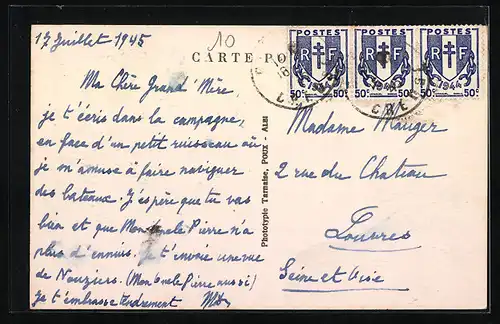 17 Juillet 1945
10
CARTE PO
POSTES POSTES POSTES
RF RF RF
1944 1944
50c 50c 50c 50c 50c 50c
CREUSE
Ma Chère Grand' Mère,
je t'écris dans la campagne,
en face d'un petit ruisseau où
je m'amuse à faire naviguer
des bateaux. J'espère que tu vas
bien et que Mon Oncle Pierre n'a
plus d'ennuis. Je t'envoie une vue
de Nouziers. (Mon Oncle Pierre aussi)
Je t'embrasse tendrement
Phototypie Tarnaise, POUX - ALBI
Madame Mauger
2 rue du Chateau
Louvres
Seine et Oise